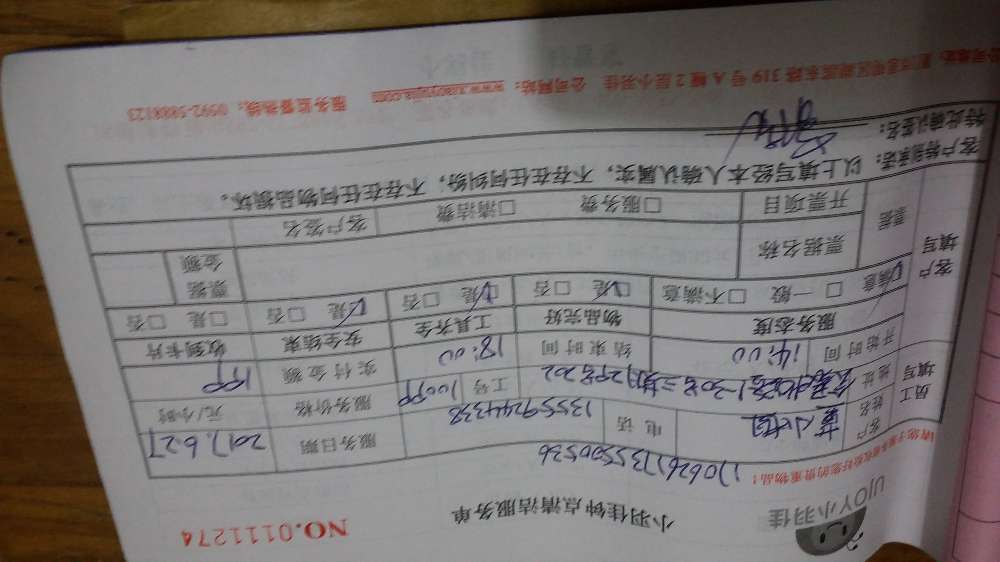 UJOY小羽佳
小羽佳钟点清洁服务单
NO.0111274
1706261735500536
请您于服务前收好您的贵重物品！
员工填写
客户姓名
电话 13559244338
服务日期 2017.6.27
地址
工号
服务价格 元/小时
开始时间 14:00
结束时间 18:00
实付金额
客户填写
服务态度
物品完好
工具齐全
安全结束
收到卡片
☑满意 □一般 □不满意
☑是 □否
☑是 □否
☑是 □否
□是 □否
票据
票据名称
票据金额
开票项目
□服务费 □清洁费
客户签名
客户特别承诺：以上填写经本人确认属实，不存在任何纠纷，不存在任何物品损坏。
特此确认签名：
319号A幢2层小羽佳 公司网站：www.xiaoyujia.com 服务监督热线：0592-5888123